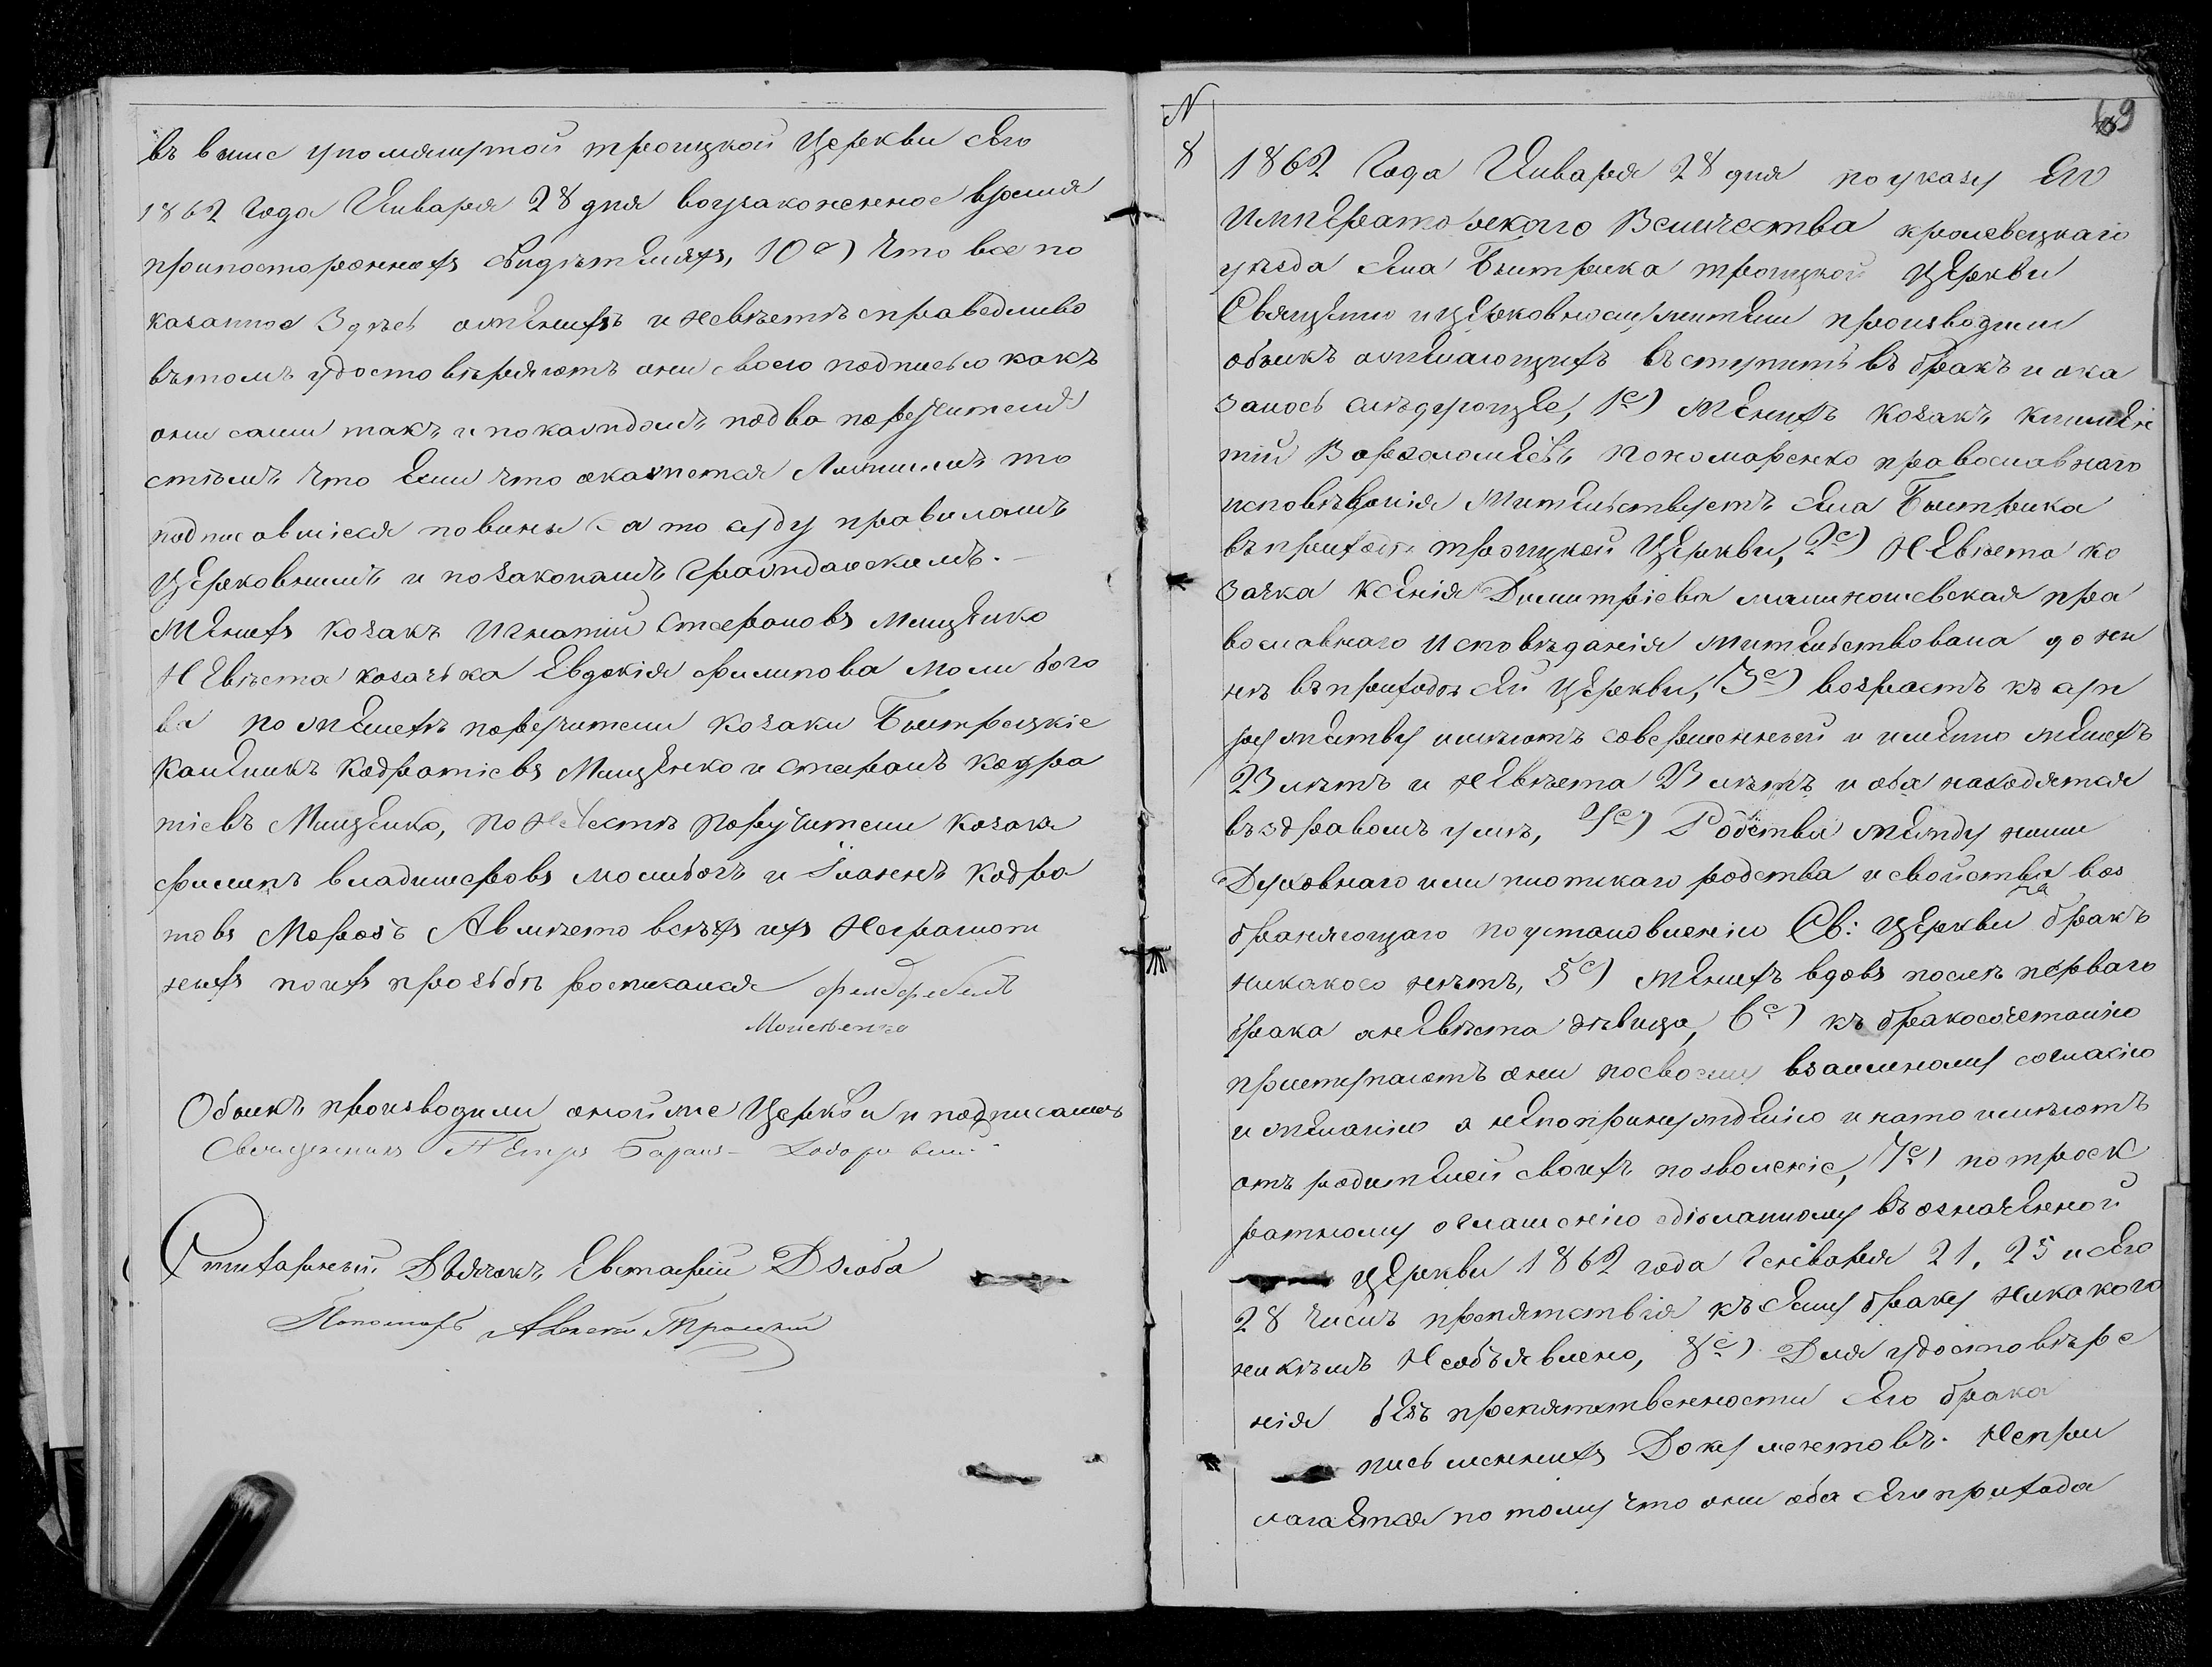 въ выше упомянутой троицкой Церкви сего
1862 Года Января 28 дня воузаконенное время
припосторонныхъ свидѣтеляхъ, 10е) Что все по
казанное Здѣсь оженихѣ и невѣстѣ справедливо
вътомъ удостовѣряютъ они своею подписью какъ
они сами такъ и покаждомъ подва поручителя
стѣмъ что Если что окажется Ложнымъ то
подписавшіеся повины за то суду правиламъ
Церковнымъ и позаконамъ гражданскимъ.
Женихъ козакъ Игнатій Стефановъ Мищенко
Невѣста козачька Евдокія филипова Моли бого
ва по Женихѣ поручители козаки Быстрецкіе
Калиникъ Кодратіевъ Мищенко и Стефанъ Кодра
тіевъ Мищенко, по Невестѣ поручители козаки
филипъ владимеровъ молибогъ и Іоаннъ Кодра
товъ Морозъ Авмѣсто всѣхъ ихъ Неграмот
ныхъ поихъ прозьбѣ росписался
Обыскъ производили оной же Церкви и подписались
Священникъ Петръ Баранъ-
Стихарный Дьячокъ Евстафій Дзюба
Пономарь Алексѣй Троицкій
N
8
69
1862 Года Января 28 дня поуказу Его
императорскаго Величества кролевецкаго
уѣзда села Быстрика троицкой Церкви
Священно ицерковнослужители производили
обыскъ ожелающихъ въступить въ бракъ и ока
залось слѣдующее, 1е) Женихъ козакъ климен
тій Варѳоломѣевъ пономаренко православнаго
исповѣданія Жительствуетъ села Быстрика
въприходѣ троицкой Церкви, 2е) Невѣста ко
зачка ксенія Димитріева малиношевская пра
вославнаго исповѣданія жительствовала донъи
нѣ въприходѣ сей Церкви, 3е) возрастъ къ суп
ружеству имѣютъ совершенный и именно женихъ
23 лѣтъ и невѣста 23 лѣтъ и оба находятся
въздравомъ умѣ, 4е) Родства между ними
Духовнаго или плотскаго родства и свойства воз
браняющаго поустановленію Св: Церкви на бракъ
никакого нѣтъ, 5е) Женихъ вдовъ послѣ перваго
брака аневѣста дѣвица, 6е) къ бракосочетанію
приступаютъ они посвоему взаимному согласію
и желанію а непопринужденію и нато имѣютъ
отъ родителей своихъ позволеніе, 7е) потроек
ратному оглашенію сдѣланному въ означенной
Церкви 1862 года Генваря 21, 25 и сего
28 числъ препятствія къ сему браку никакого
никѣмъ Необъявлено, 8е) Для удостовѣре
нія безъ препятственности сего брака
письменныхъ Документовъ Непри
лагается потому что они оба сего прихода